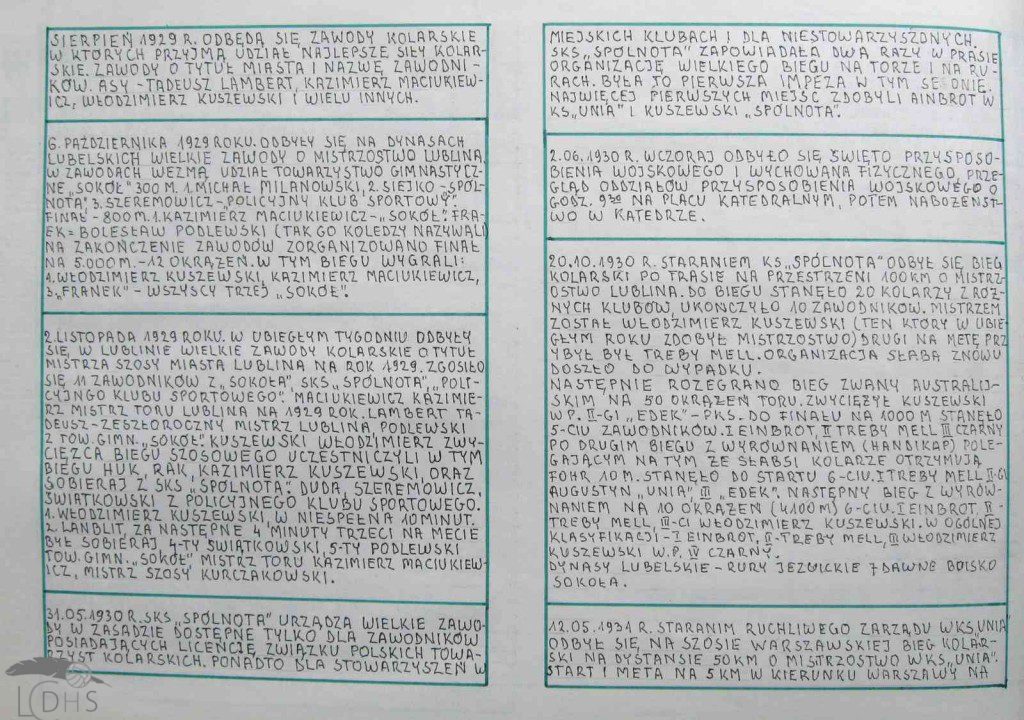 SIERPIEŃ 1929 R. ODBĘDĄ SIĘ ZAWODY KOLARSKIE
W KTÓRYCH PRZYJMĄ UDZIAŁ NAJLEPSZE SIŁY KOLAR-
SKIE. ZAWODY O TYTUŁ MIASTA I NAZWĘ ZAWODNI-
KÓW. ASY - TADEUSZ LAMBERT, KAZIMIERZ MACIUKIEW-
ICZ, WŁODZIMIERZ KUSZEWSKI I WIELU INNYCH.
6. PAŹDZIERNIKA 1929 ROKU. ODBYŁY SIĘ NA DYNASACH
LUBELSKICH WIELKIE ZAWODY O MISTRZOSTWO LUBLINA.
W ZAWODACH WEZMĄ UDZIAŁ TOWARZYSTWO GIMNASTYCZ-
NE „SOKÓŁ" 300 M. 1. MICHAŁ MILANOWSKI, 2. SIEJKO - „SPÓL-
NOTA", 3. SZEREMOWICZ - „POLICYJNY KLUB SPORTOWY".
FINAŁ - 800 M. 1. KAZIMIERZ MACIUKIEWICZ - „SOKÓŁ". FRA-
EK = BOLESŁAW PODLEWSKI (TAK GO KOLEDZY NAZYWALI)
NA ZAKOŃCZENIE ZAWODÓW ZORGANIZOWANO FINAŁ
NA 5.000 M. - 12 OKRĄŻEŃ. W TYM BIEGU WYGRALI:
1. WŁODZIMIERZ KUSZEWSKI, KAZIMIERZ MACIUKIEWICZ,
3. „FRANEK" - WSZYSCY TRZEJ „SOKÓŁ".
2. LISTOPADA 1929 ROKU. W UBIEGŁYM TYGODNIU ODBYŁY
SIĘ W LUBLINIE WIELKIE ZAWODY KOLARSKIE O TYTUŁ
MISTRZA SZOSY MIASTA LUBLINA NA ROK 1929. ZGOSIŁO
SIĘ 11 ZAWODNIKÓW Z „SOKOŁA", SKS „SPÓLNOTA", „POLI-
CYJNGO KLUBU SPORTOWEGO". MACIUKIEWICZ KAZIMIE-
RZ MISTRZ TORU LUBLINA NA 1929 ROK. LAMBERT TA-
DEUSZ - ZESZŁOROCZNY MISTRZ LUBLINA, PODLEWSKI
Z TOW. GIMN. „SOKÓŁ". KUSZEWSKI WŁODZIMIERZ ZWY-
CIĘZCA BIEGU SZOSOWEGO UCZESTNICZYLI W TYM
BIEGU HUK, RAK, KAZIMIERZ KUSZEWSKI, ORAZ
SOBIERAJ Z SKS „SPÓLNOTA". DUDA, SZEREMOWICZ,
ŚWIATKOWSKI Z POLICYJNEGO KLUBU SPORTOWEGO.
1. WŁODZIMIERZ KUSZEWSKI, W NIESPEŁNA 10 MINUT.
2. LANDLIT, ZA NASTĘPNE 4 MINUTY TRZECI NA MECIE
BYŁ SOBIERAJ, 4-TY ŚWIATKOWSKI, 5-TY PODLEWSKI
TOW. GIMN. „SOKÓŁ", MISTRZ TORU KAZIMIERZ MACIUKIEW-
ICZ, MISTRZ SZOSY KURCZAKOWSKI.
31.05.1930 R. SKS „SPÓLNOTA" URZĄDZA WIELKIE ZAWO-
DY W ZASADZIE DOSTĘPNE TYLKO DLA ZAWODNIKÓW
POSIADAJĄCYCH LICENCJĘ ZWIĄZKU POLSKICH TOWA-
RZYST KOLARSKICH. PONADTO DLA STOWARZYSZEŃ W
MIEJSKICH KLUBACH I DLA NIESTOWARZYSZONYCH.
SKS „SPÓLNOTA" ZAPOWIADAŁA DWA RAZY W PRASIE
ORGANIZACJĘ WIELKIEGO BIEGU NA TORZE I NA RU-
RACH. BYŁA TO PIERWSZA IMPEZA W TYM SEZONIE.
NAJWIĘCEJ PIERWSZYCH MIEJSC ZDOBYLI AINBROT W
KS „UNIA" I KUSZEWSKI „SPÓLNOTA".
2.06.1930 R. WCZORAJ ODBYŁO SIĘ ŚWIĘTO PRZYSPOSO-
BIENIA WOJSKOWEGO I WYCHOWANA FIZYCZNEGO, PRZE-
GLĄD ODDZIAŁÓW PRZYSPOSOBIENIA WOJSKOWEGO O
GODZ. 9³⁰ NA PLACU KATEDRALNYM, POTEM NABOŻEŃST-
WO W KATEDRZE.
20.10.1930 R. STARANIEM KS „SPÓLNOTA" ODBYŁ SIĘ BIEG
KOLARSKI PO TRASIE NA PRZESTRZENI 100 KM O MISTRZ-
OSTWO LUBLINA. DO BIEGU STANĘŁO 20 KOLARZY Z RÓŻ-
NYCH KLUBÓW, UKOŃCZYŁO 10 ZAWODNIKÓW. MISTRZEM
ZOSTAŁ WŁODZIMIERZ KUSZEWSKI (TEN KTÓRY W UBIE-
GŁYM ROKU ZDOBYŁ MISTRZOSTWO) DRUGI NA METĘ PRZ
YBYŁ BYŁ TREBY MELL. ORGANIZACJA SŁABA ZNÓWU
DOSZŁO DO WYPADKU.
NASTĘPNIE ROZEGRANO BIEG ZWANY AUSTRALIJ-
SKIM NA 50 OKRĄŻEŃ TORU. ZWYCIĘŻYŁ KUSZEWSKI
W P. II-GI „EDEK" - PKS. DO FINAŁU NA 1000 M STANĘŁO
5-CIU ZAWODNIKÓW. I EINBROT, II TREBY MELL III CZARNY
PO DRUGIM BIEGU Z WYRÓWNANIEM (HANDIKAP) POLE-
GAJĄCYM NA TYM ŻE SŁABSI KOLARZE OTRZYMUJĄ
FOHR 10 M. STANĘŁO DO STARTU 6-CIU. I TREBY MELL II-GI
AUGUSTYN „UNIA", III „EDEK". NASTĘPNY BIEG Z WYRÓW-
NANIEM NA 10 OKRĄŻEŃ (4100 M) 6-CIU. I EINBROT, II -
TREBY MELL, III-CI WŁODZIMIERZ KUSZEWSKI. W OGÓLNEJ
KLASYFIKACJI - I EINBROT, II - TREBY MELL, III WŁODZIMIERZ
KUSZEWSKI W.P. IV CZARNY.
DYNASY LUBELSKIE - RURY JEZUICKIE 7 DAWNE BOISKO
SOKOŁA.
12.05.1931 R. STARANIM RUCHLIWEGO ZARZĄDU WKS „UNIA"
ODBYŁ SIĘ NA SZOSIE WARSZAWSKIEJ BIEG KOLAR-
SKI NA DYSTANSIE 50 KM O MISTRZOSTWO WKS „UNIA".
START I META NA 5 KM W KIERUNKU WARSZAWY NA
LCDHS